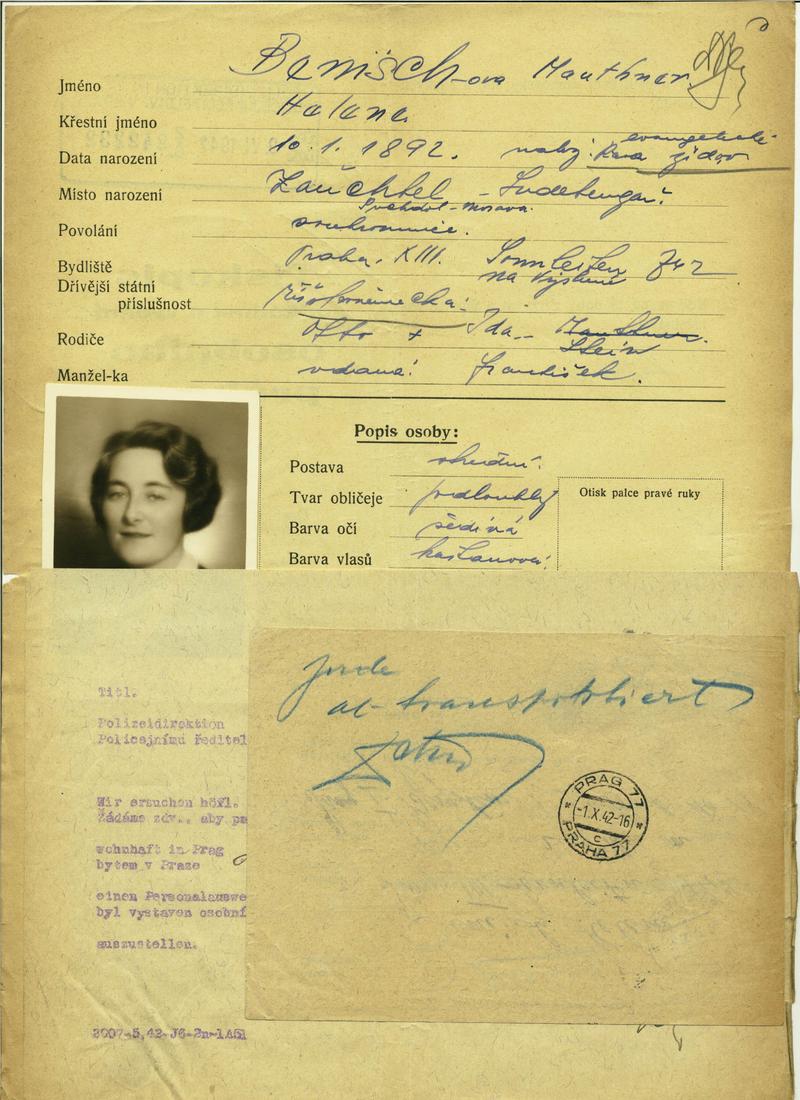 Jméno Benisch-ova Mauthner
Křestní jméno
Data narození 10. 1. 1892. evangelické
rasa židov
Místo narození Zauchtel -
Suchdol - Morava.
Povolání soukromnice.
Bydliště Praha. XIII. Sonnleiten 742
na Výsluní
Dřívější státní
příslušnost
Rodiče Otto + Ida - Mauthner.
Stein
Manžel-ka vdaná: František.
Popis osoby:
Postava střední.
Tvar obličeje podlouhlý
Barva očí šedivá
Barva vlasů kaštanová.
Otisk palce pravé ruky
Titl.
Polizeidirektion
Policejnímu ředitel
Wir ersuchen höfl.
Žádáme zdv., aby pa
wohnhaft in Prag
bytem v Praze
einen Personalauswe
byl vystaven osobní
auszustellen.
3007-5,42-J6-2n-1A51
Jude
ab-transportiert
PRAG 77
-1.X.42-16
C
PRAHA 77